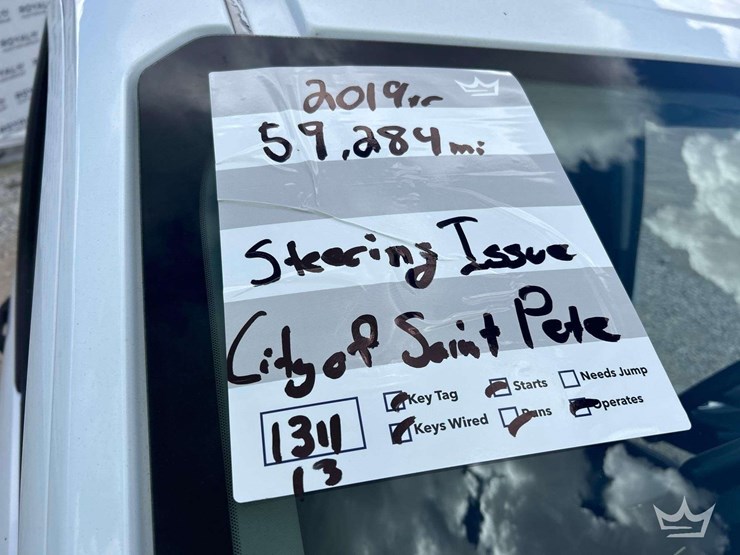 2019 yr
59,284 mi
Steering Issue
City of Saint Pete
Key Tag Starts Needs Jump
Keys Wired Runs Operates
1311
13